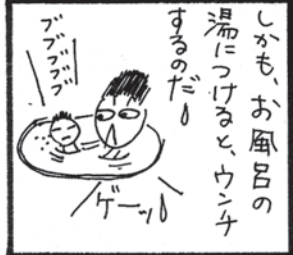 しかも、お風呂の
湯につけると、ウンチ
するのだ!
ブブブブブ
ゲーッ!